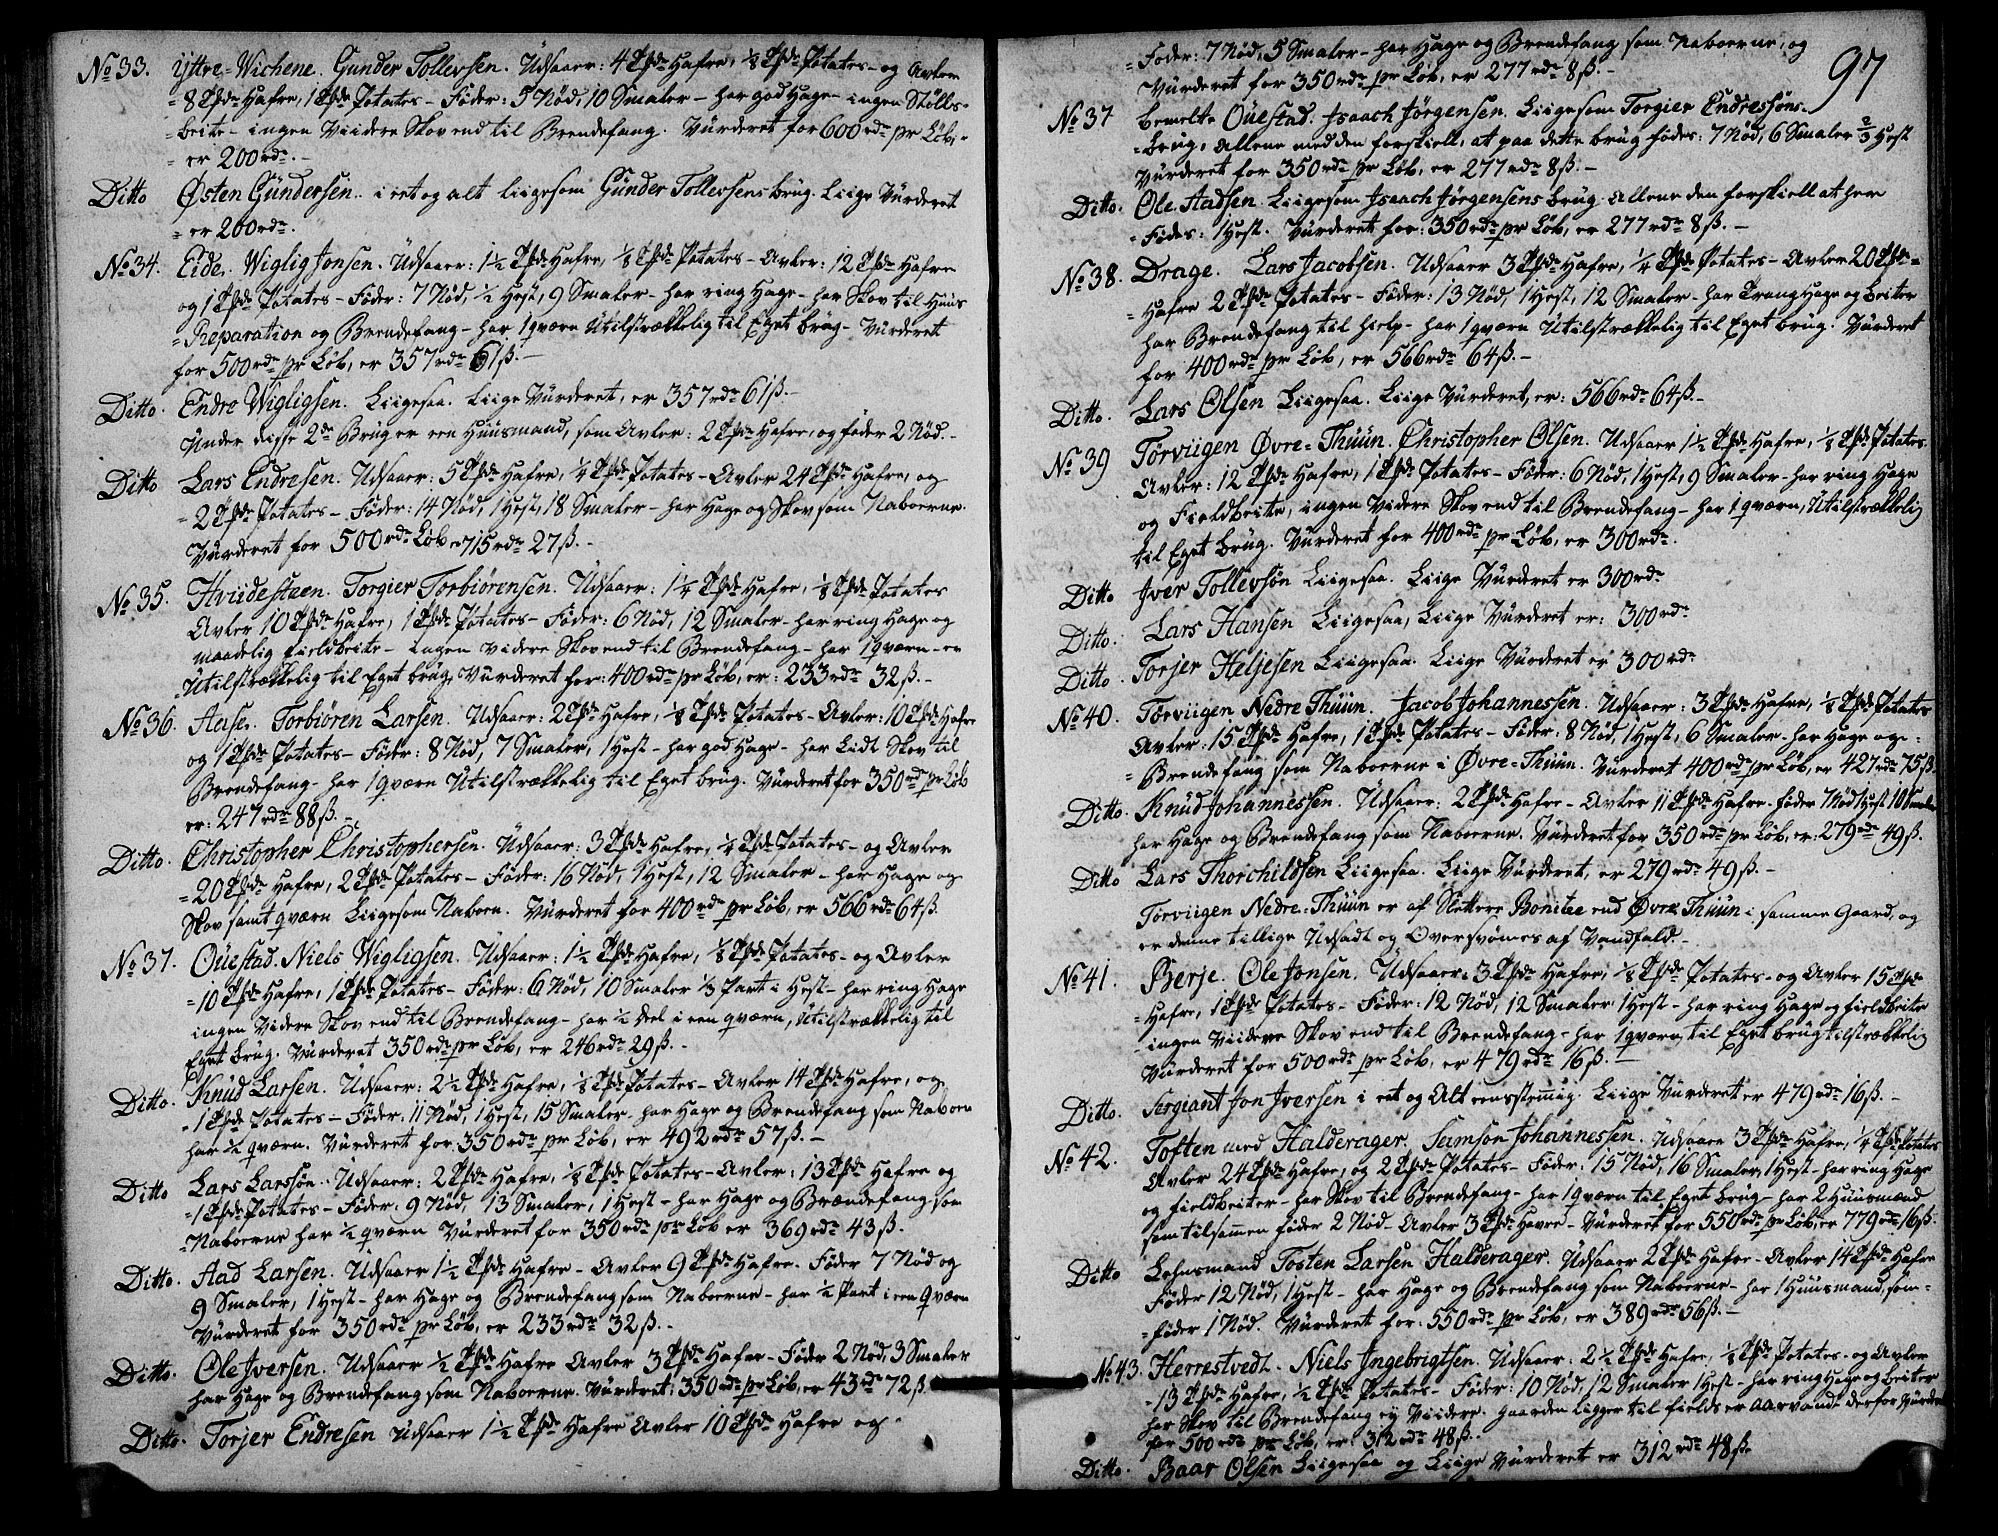 No 33. Yttre-Wichene. Gunder Tollevsen. Udsaaer: 4 Tdr Hafre, 1/8 Tde Potates - og Avler
8 Tdr Hafre, 1 Tde Potates - Föder: 5 Nöd, 10 Smaler - har god Hage - ingen Stölls-
=beite - ingen Viidere Skov end til Brendefang. Vurderet for 600 rdr pr Löb,-
= er 200 rdr. -
Ditto Østen Gundersen. i eet og alt liigesom Gunder Tollevsens brug. Liige Vurderet
= er 200 rdr.
No 34. Eide. Wiglig Jonsen. Udsaaer: 1½ Tde Hafre, 1/8 Tde Potates - Avler: 12 Tdr Hafre
og 1 Tde Potates - Föder: 7 Nöd, ½ Hest, 9 Smaler - har ring Hage - har Skov til Huus
=Reparation og Brendefang - har 1 qværn Utilstrækkelig til Eget brug - Vurderet
for 500 rdr pr Löb, er 357 rdr 61 ß. -
Ditto. Endre Wigligsen. Liigesaa. Liige Vurderet, er 357 rdr 61 ß. -
Under disse 2de Brug er een Huusmand, som Avler: 2 Tdr Hafre, og föder 2 Nöd. -
Ditto Lars Endresen. Udsaaer: 5 Tdr Hafre, ¼ Tde Potates - Avler 24 Tdr Hafre, og
= 2 Tdr Potates - Föder: 14 Nöd, 1 Hest, 18 Smaler - har Hage og Skov som Naboerne.
Vurderet for 500 rdr Löb er 715 rdr 27 ß. -
No 35. Hviidesteen. Torgier Torbiörensen. Udsaaer: 1¼ Tde Hafre, 1/8 Tde Potates
Avler 10 Tdr Hafre, 1 Tde Potates - Föder: 6 Nöd, 12 Smaler - har ring Hage og
maadelig fieldbeite - ingen videre Skov end til Brendefang - har 1 qværn - er
Utilstrækkelig til Eget brug, Vurderet for: 400 rdr pr Löb, er: 233 rdr 32 ß. -
No 36. Aase. Torbiören Larsen. Udsaaer: 2 Tdr Hafre, 1/8 Tde Potates - Avler: 10 Tdr Hafre
og 1 Tde Potates - Föder: 8 Nöd, 7 Smaler, 1 Hest - har god Hage - har Lidt Skov til
Brendefang - har 1 qværn Utilstrækkelig til Eget brug. Vurderet for 350 rdr pr Löb
er: 247 rdr 88 ß. -
Ditto. Christopher Christophersen. Udsaaer: 3 Tdr Hafre, ¼ Tde Potates - og Avler
= 20 Tdr Hafre, 2 Tdr Potates - Föder: 16 Nöd, 1 Hest, 12 Smaler - har Hage og
Skov samt qværn Liigesom Naboen. Vurderet for 400 rdr pr Löb, er 566 rdr 64 ß.
No 37. Ouestad. Niels Wigligsen. Udsaaer: 1½ Tde Hafre, 1/8 Tde Potates - og Avler
= 10 Tdr Hafre, 1 Tde Potates - Föder: 6 Nöd, 10 Smaler 1/3 Part i Hest - har ring Hage
ingen Videre Skov end til Brendefang - har ¼ deel i een qværn, Utilstrækkelig til
Eget brug. Vurderet 350 rdr pr Löb, er 246 rdr 29 ß. -
Ditto. Knud Larsen. Udsaaer: 2½ Tde Hafre, 1/8 Tde Potates - Avler 14 Tdr Hafre, og
- 1 Tde Potates - Föder: 11 Nöd, 1 Hest, 15 Smaler - har Hage og Brendefang som Naboen
har ¼ qværn. Vurderet for 350 rdr pr Löb, er 492 rdr 57 ß. -
Ditto Lars Larssön. Udsaaer: 2 Tdr Hafre, 1/8 Tde Potates - Avler: 13 Tdr Hafre og
- 1 Tde Potates - Föder: 9 Nöd, 13 Smaler, 1 Hest - har Hage og Brændefang som
=Naboerne har ¼ qværn Vurderet for 350 rdr pr Löb er 369 rdr 43 ß.
Ditto. Aad Larsen. Udsaaer 1½ Tde Hafre - Avler 9 Tdr Hafre. Föder 7 Nöd og
9 Smaler, 1 Hest - har Hage og Brendefang som Naboerne - har ¼ Part i een qværn
Vurderet for 350 rdr pr Löb, er 233 rdr 32 ß. -
Ditto. Ole Iversen. Udsaaer ½ Tde Hafre Avler 3 Tdr Hafre - Föder 2 Nöd, 3 Smaler
har Hage og Brendefang som Naboerne. Vurderet: 350 rdr pr Löb, er 43 rdr 72 ß.
Ditto. Torjer Endresen Udsaaer 1½ Tde Hafre Avler 10 Tdr Hafre og.
97
=Föder: 7 Nöd, 5 Smaler - har Hage og Brendefang som Naboerne, og
Vurderet for 350 rdr pr Löb, er 277 rdr 8 ß. -
No 37 bemelte Ouestad. Isaach Jörgensen. Liigesom Torgier Endressöns.
=brug, Allene med den forskiell, at paa dette brug födes: 7 Nöd, 6 Smaler 2/3 Hest
Vurderet for 350 rdr pr Löb, er 277 rdr 8 ß. -
Ditto. Ole Aadsen. Liigesom Isaach Jörgensens brug. Allene den forskiell at her
=Födes: 1 Hest. Vurderet for: 350 rdr pr Löb, er 277 rdr 8 ß. -
No 38. Drage. Lars Jacobsen. Udsaaer 3 Tdr Hafre, ¼ Tde Potates - Avler 20 Tdr =
=Hafre 2 Tdr Potates - Föder: 13 Nöd, 1 Hest, 12 Smaler - har trang Hage og beiter
har Brendefang til hielp - har 1 qværn Utilstrækkelig til Eget brug. Vurderet
for 400 rdr pr Löb, er 566 rdr 64 ß. -
Ditto. Lars Olsen Liigesaa. Liige Vurderet, er: 566 rdr 64 ß. -
No 39 Torviigen Øvre-Thuun. Christopher Olsen. Udsaaer 1½ Tde Hafre, 1/8 Tde Potates.
Avler: 12 Tdr Hafre, 1 Tde Potates - Föder: 6 Nöd, 1 Hest, 9 Smaler - har ring Hage
og Fieldbeite, ingen Videre Skov end til Brendefang - har 1 qværn, Utilstrækkelig
til Eget brug. Vurderet for 400 rdr pr Löb, er 300 rdr.
Ditto Iver Tollevsön Liigesaa. Liige Vurderet er 300 rdr
Ditto. Lars Hansen Liigesaa, Liige Vurderet er: 300 rdr
Ditto Torjer Heljesen Liigesaa. Liige Vurderet er 300 rdr
No 40. Torviigen Nedre Thuun. Jacob Johannessen. Udsaaer: 3 Tdr Hafre, 1/8 Tde Potates
Avler: 15 Tdr Hafre, 1 Tde Potates - Föder: 8 Nöd, 1 Hest, 6 Smaler - har Hage og -
=Brendefang som Naboerne i Øvre-Thuun. Vurderet 400 rdr pr Löb, er 427 rdr 75 ß.
Ditto. Knud Johannessen. Udsaaer: 2 Tdr Hafre - Avler 11 Tdr Hafre - föder 7 Nöd 1 Hest 10 Smaler
har Hage og Brendefang som Naboerne. Vurderet for 350 rdr pr Löb, er: 279 rdr 49 ß.
Ditto Lars Thorchildsen Liigesaa. Liige Vurderet, er 279 rdr 49 ß. -
Torviigen Nedre-Thuun er af Slettere Bonitee end Øvre Thuun i samme Gaard, og
er denne tillige Udsadt og Oversvömes af Vandfald. -
No 41. Berje. Ole Jonsen. Udsaaer: 3 Tdr Hafre, 1/8 Tde Potates - og Avler 15 Tdr
=Hafre, 1 Tde Potates - Föder: 12 Nöd, 12 Smaler 1 Hest - har ring Hage og fieldbeite
ingen Viidere Skov end til Brendefang - har 1 qværn, til Eget brug tilstrækkelig
Vurderet for 500 rdr pr Löb, er 479 rdr 16 ß. -
Ditto. Sergiant Jon Iversen i eet og Alt eensstemmig. Liige Vurderet er 479 rdr 16 ß. -
No 42. Toften med Halderager. Samson Johannessen. Udsaaer 3 Tdr Hafre, ¼ Tde Potates
Avler 24 Tdr Hafre, og 2 Tdr Potates - Föder: 15 Nöd, 16 Smaler, 1 Hest - har ring Hage
og fieldbeiter - har Skov til Brendefang - har 1 qværn til Eget brug - har 2 Huusmænd
som tilsamen föder 2 Nöd - Avler 3 Tdr Havre - Vurderet for 550 rdr pr Löb, er 779 rdr 16 ß.
Ditto Lehnsmand Tosten Larsen Halderager. Udsaaer 2 Tdr Hafre - Avler 14 Tdr Hafre
Föder 12 Nöd, 1 Hest - har Hage og Brendefang som Naboerne - har 1 Huusmand, som-
=föder 1 Nöd. Vurderet for: 550 rdr pr Löb, er 389 rdr 56 ß. -
No 43. Herrestvedt. Niels Ingebrigtsen. Udsaaer: 2½ Tde Hafre, 1/8 Tde Potates - og Avler
- 13 Tdr Hafre, ½ Tde Potates - Föder: 10 Nöd, 12 Smaler 1 Hest - har ring Hage og beiter
har Skov til Brendefang ey Viidere. Gaarden ligger til fields er aarvandt derfor Vurderet
for 500 rdr pr Löb, er: 312 rdr 48 ß. -
Ditto. Baar Olsen Liigesaa og Liige Vurderet er 312 rdr 48 ß.